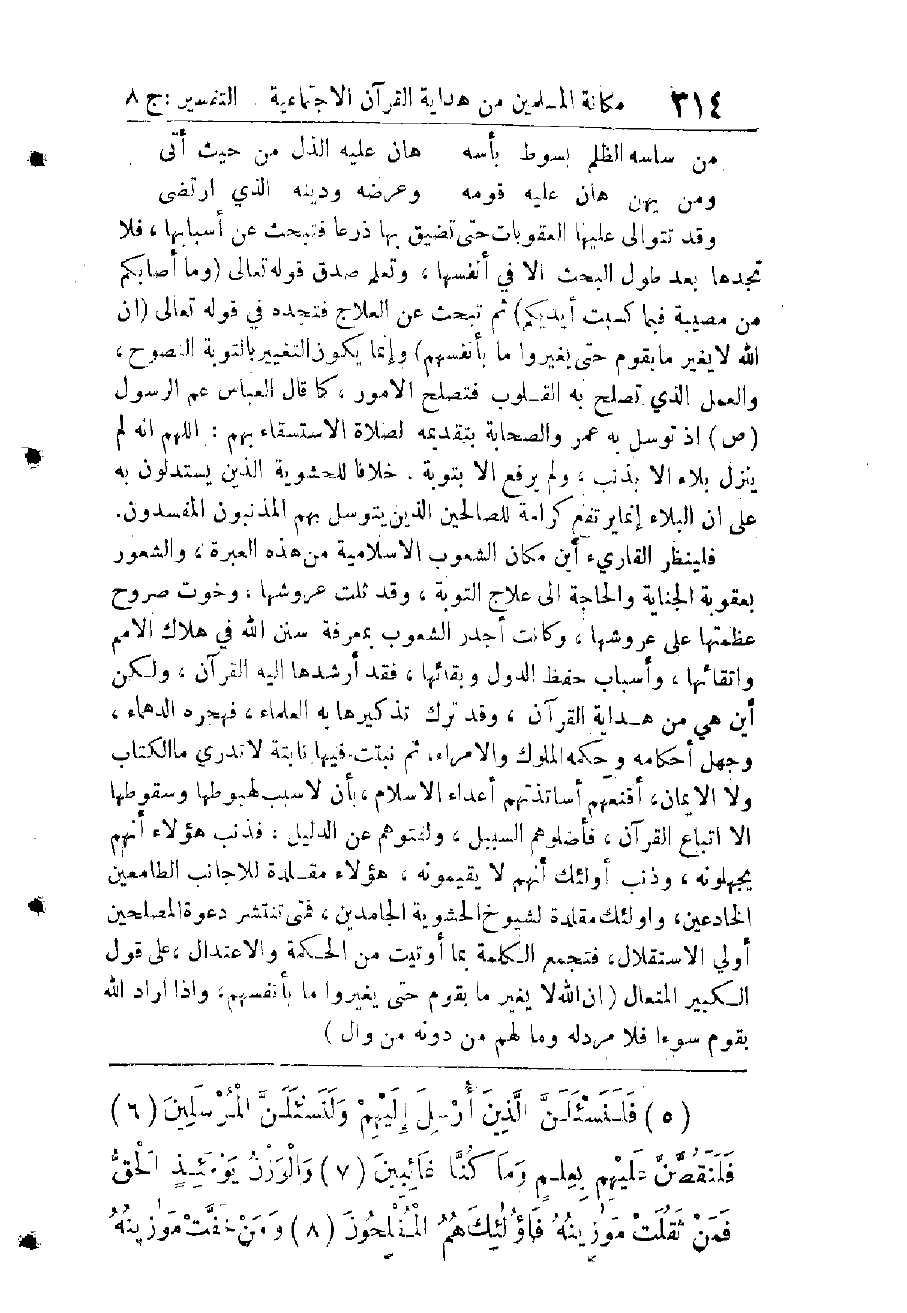 ٣١٤ مكانة المسلمين من هداية القرآن الاجتماعية . التفسير : ج ٨
من ساسه الظلم بسوط بأسه هان عليه الذل من حيث أتى
ومن يهن هان عليه قومه وعرضه ودينه الذي ارتضى
وقد تتوالى عليها العقوبات حتى تضيق بها ذرعا فتبحث عن أسبابها ، فلا
تجدها بعد طول البحث الا في أنفسها ، وتعلم صدق قوله تعالى (وما أصابكم
من مصيبة فبما كسبت أيديكم) ثم تبحث عن العلاج فتجده في قوله تعالى (ان
الله لا يغير ما بقوم حتى يغيروا ما بأنفسهم) وإنما يكون التغيير بالتوبة النصوح ،
والعمل الذي تصلح به القلوب فتصلح الامور ، كما قال العباس عم الرسول
(ص) اذ توسل به عمر والصحابة بتقديمه لصلاة الاستسقاء بهم : اللهم انه لم
ينزل بلاء الا بذنب ، ولم يرفع الا بتوبة . خلافا للحشوية الذين يستدلون به
على ان البلاء إنما يرتفع كرامة للصالحين الذين يتوسل بهم المذنبون المفسدون.
فلينظر القاريء أين مكان الشعوب الاسلامية من هذه العبرة ، والشعور
بعقوبة الجناية والحاجة الى علاج التوبة ، وقد ثلت عروشها ، وخوت صروح
عظمتها على عروشها ، وكانت أجدر الشعوب بمعرفة سنن الله في هلاك الامم
واتقائها ، وأسباب حفظ الدول وبقائها ، فقد أرشدها اليه القرآن ، ولكن
أين هي من هداية القرآن ، وقد ترك تذكيرها به العلماء ، فهجره الدهماء ،
وجهل أحكامه وحكمه الملوك والامراء، ثم نبتت فيها نابتة لا تدري ما الكتاب
ولا الايمان، أقنعهم أساتذتهم أعداء الاسلام ، بأن لا سبب لهبوطها وسقوطها
الا اتباع القرآن ، فأضلوهم السبيل ، ولفتوهم عن الدليل : فذنب هؤلاء أنهم
يجهلونه ، وذنب أولئك أنهم لا يقيمونه ، هؤلاء مقلدة للاجانب الطامعين
الخادعين، واولئك مقلدة لشيوخ الحشوية الجامدين ، فمتى تنتشر دعوة المصلحين
أولي الاستقلال، فتجمع الكلمة بما أوتيت من الحكمة والاعتدال ، على قول
الكبير المتعال ( ان الله لا يغير ما بقوم حتى يغيروا ما بأنفسهم، واذا اراد الله
بقوم سوءا فلا مرد له وما لهم من دونه من وال )
(٥) فَلَنَسْئَلَنَّ الَّذِينَ أُرْسِلَ إِلَيْهِمْ وَلَنَسْئَلَنَّ الْمُرْسَلِينَ (٦)
فَلَنَقُصَّنَّ عَلَيْهِم بِعِلْمٍ وَمَا كُنَّا غَائِبِينَ (٧) وَالْوَزْنُ يَوْمَئِذٍ الْحَقُّ
فَمَنْ ثَقُلَتْ مَوَٰزِينُهُ فَأُولَٰئِكَ هُمُ الْمُفْلِحُونَ (٨) وَمَنْ خَفَّتْ مَوَٰزِينُهُ